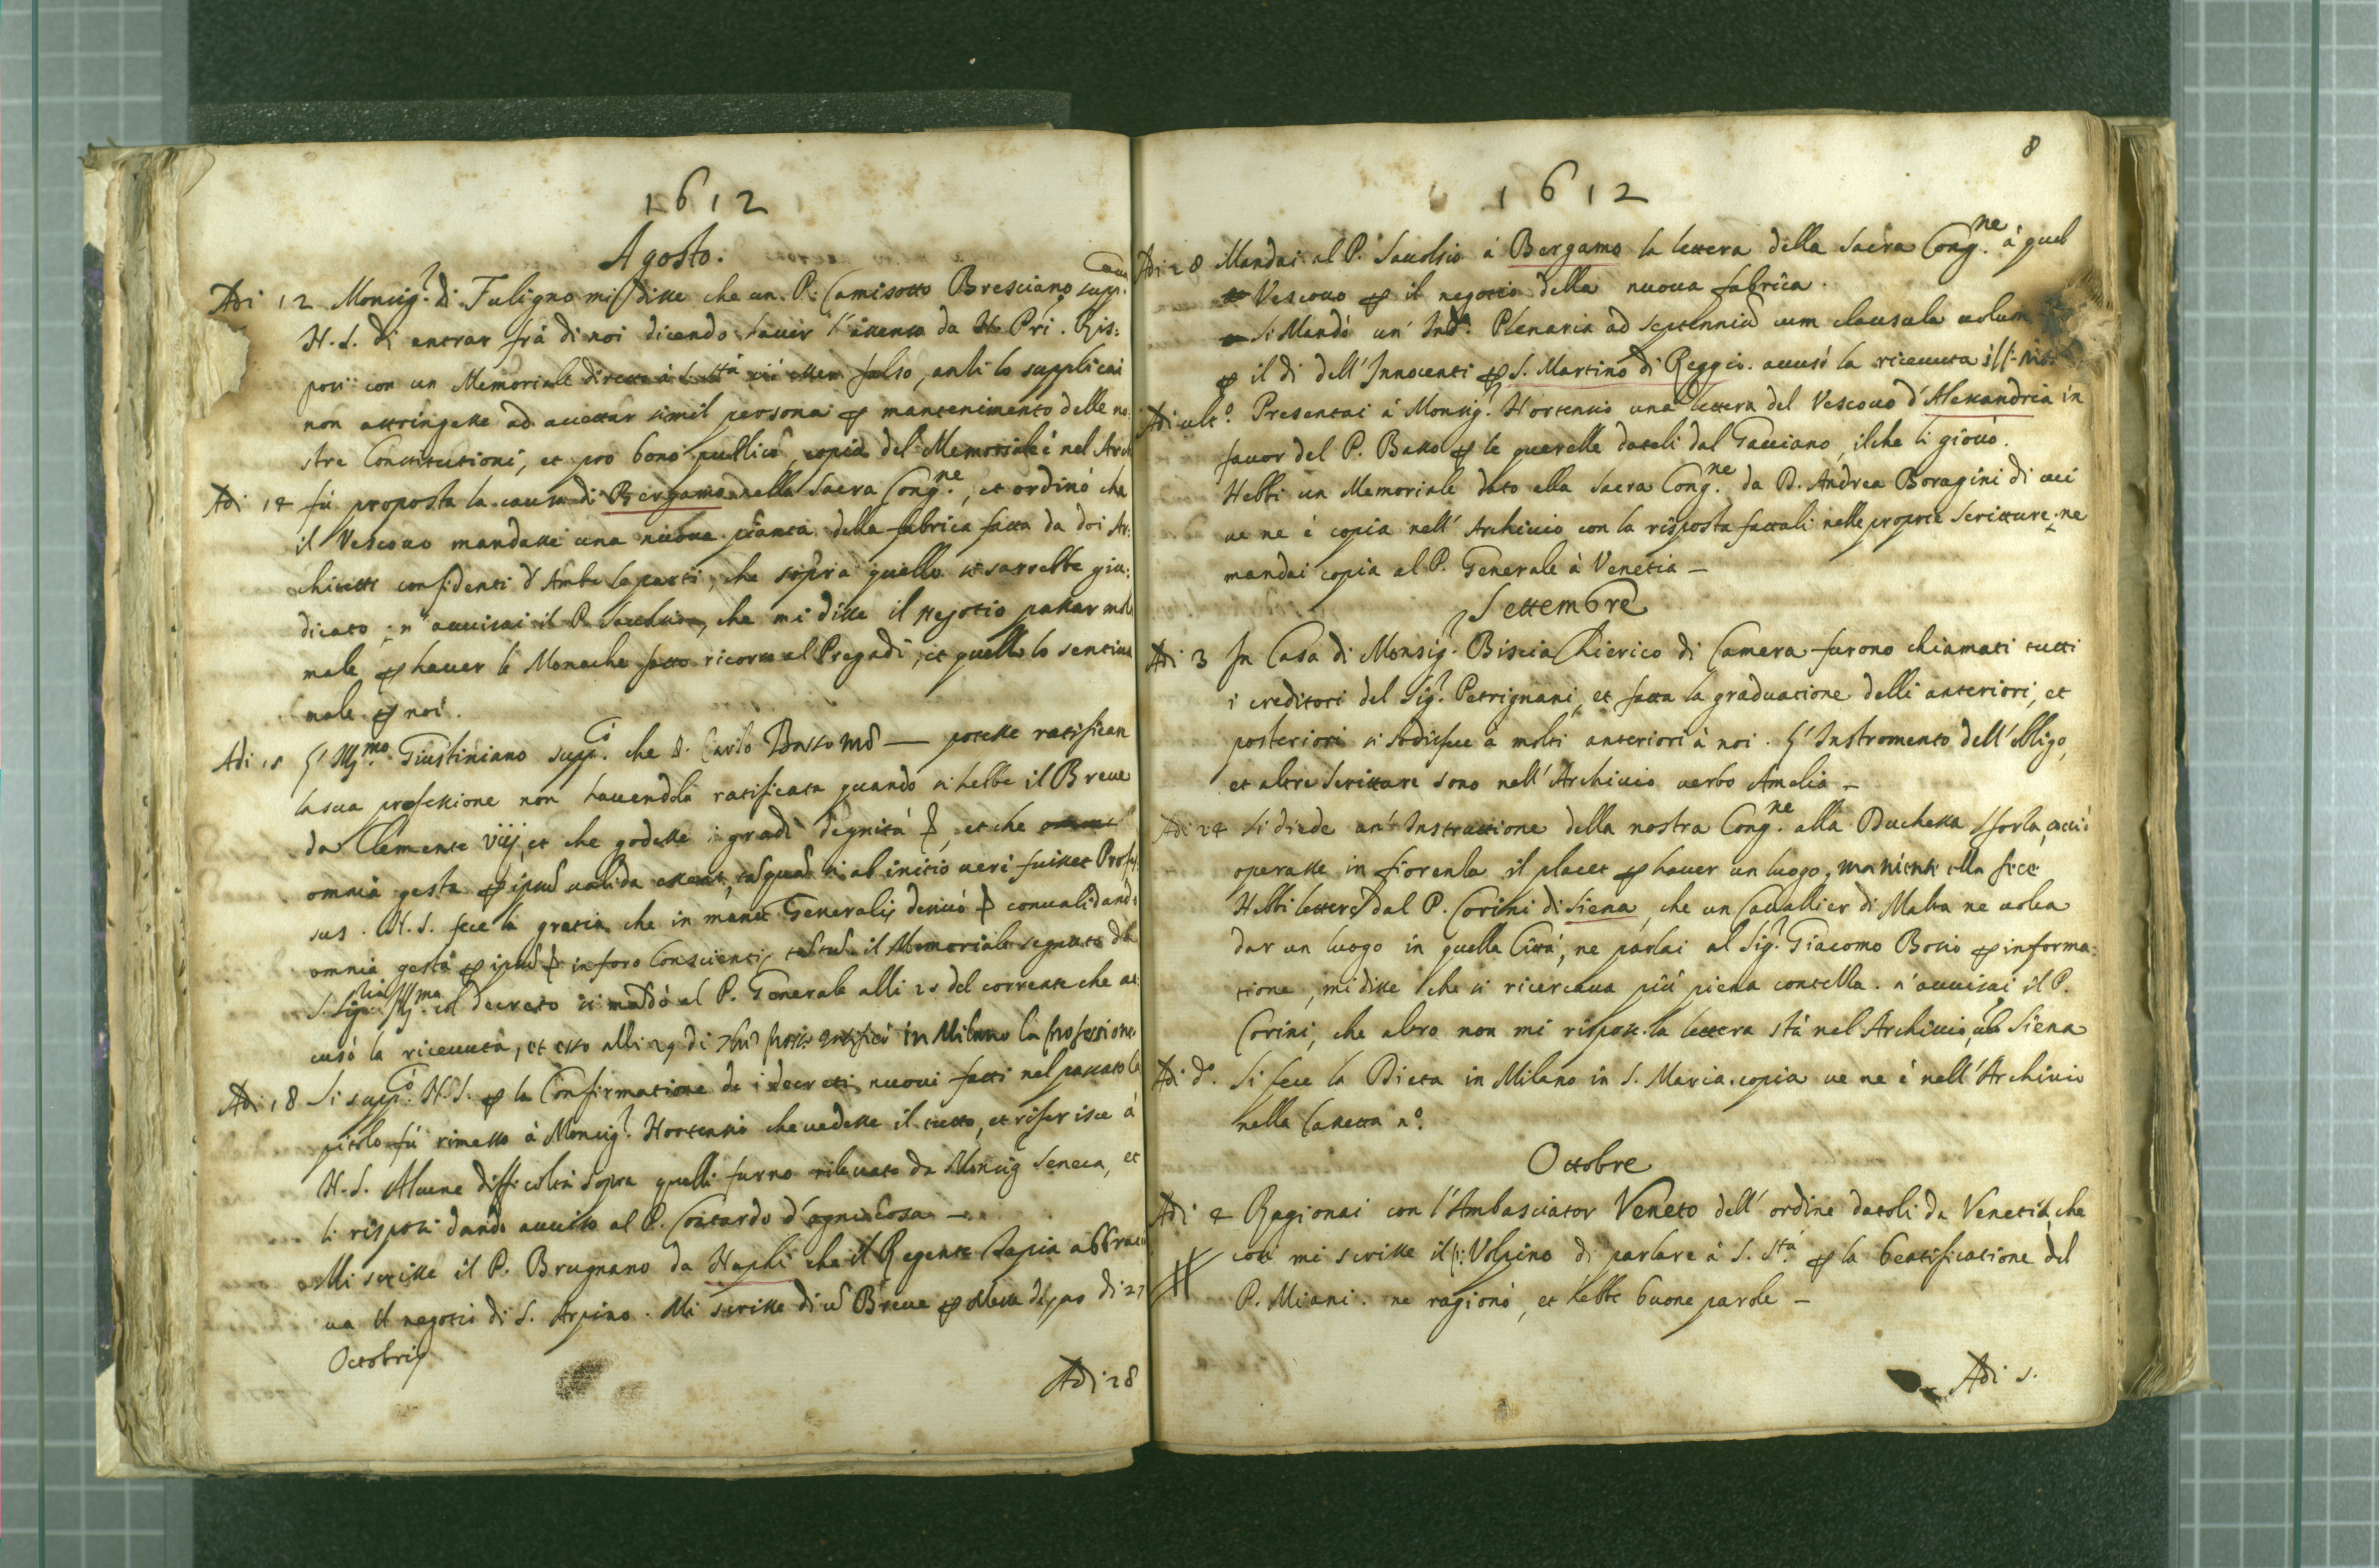 1612
Agosto.
Adi 12 Monsig.r di Fuligno mi disse che un P. Camisotto Bresciano supp.
N. S. di entrar frà di noi dicendo haver l'assenso da N. Pri. Ris:
posi con un Memoriale diretto à S. Stà ciò esser falso, anzi lo supplicai
non astringesse ad accettar simil persona per mantenimento delle no
stre Constitutioni, et pro bono publico, copia del Memoriale è nel Arch
Adi 14 fù proposta la causa di Bergamo nella Sacra Cong.ne, et ordinò che
il Vescovo mandasse una nuova pianta della fabrica fatta da doi Ar:
chitetti confidenti d'Ambe le parti, che sopra quello si sarrebbe giu:
dicato; n'avvisai il P. che mi disse il negotio passar mol
male per haver le Monache fatto ricorso al Pregadi, et quello lo sentiva
male per noi.
Adi 15 L'Ill.mo Giustiniano supp.ò che D. Carlo Bosso — potesse ratificar
la sua professione non havendola ratificata quando si hebbe il Breve
da Clemente viij, et che godesse i gradi dignità et che
omnia gesta per ipsum valida essent, tasquam si ab initio veri fuisset Profes
sus. N. S. fece la gratia che in manu Generalis convalidando
omnia gesta per ipsum in foro Conscientiæ il Memoriale segnato da
S. Sig.ria Ill.ma col decreto si mandò al P. Generale alli 25 del corrente che ac
cusò la ricevuta, et esso alli 29 di 7bre in Milano la professione
Adi 18 Si supp.ò N. S. per la Confirmatione de i decreti nuovi fatti nel passato Ca
pitolo fù rimesso à Monsig.r Hortensio che vedesse il tutto, et riferisce à
N. S. Alcune difficoltà sopra quelli furno rilevate da Monsig Seneca, et
li risposi dando avviso al P. Contardo d'ogni Cosa —
Mi scrisse il P. Brugnano da Napli che il Regente Tapia abbrac
va il negotio di S. Arpino. Mi scrisse di un Breve per di 27
Octobris
Adi 28

8
1612
Adi 28 Mandai al P. à Bergamo la lettera della Sacra Cong.ne à quel
Vescovo per il negotio della nuova fabrica.
Si Mandò un' Ind.a Plenaria ad septenniũ cum clausula volum
per il di dell'Innocenti per S. Martino di Reggio. accusò la ricevuta
Adi ult.o Presentai à Monsig.r Hortensio una lettera del Vescovo d'Alessandria in
favor del P. Basso per le querelle dateli dal Gaviano, ilche li giovò.
Hebbi un Memoriale dato alla Sacra Cong.ne da D. Andrea Boragini di cui
ve ne è copia nell'Archivio con la risposta fattali nelle proprie scritture; ne
mandai copia al P. Generale à Venetia —
Settembre
Adi 3 In Casa di Monsig.r Biscia Chierico di Camera furono chiamati tutti
i creditori del Sig.r Petrignani, et fatta la graduatione delli anteriori, et
posteriori si sodisfece à molti anteriori à noi. L'Instromento dell'obligo,
et altre Scritture sono nell'Archivio verbo Amelia —
Adi 24 Si diede un'Instruttione della nostra Cong.ne alla Duchessa Sforza, acciò
operasse in fiorenza il placet per haver un luogo, ma niente ella fece
Hebbi lettere dal P. Corini di Siena, che un Cavallier di Malta ne volea
dar un luogo in quella Città, ne parlai al Sig.r Giacomo Bosio per informa:
tione, mi disse che si ricercava più piena contezza. n'avvisai il P.
Corini, che altro non mi rispose. la lettera stà nel Archivio, verbo Siena
Adi d.o Si fece la Dieta in Milano in S. Maria. copia ve ne è nell'Archivio
nella Cassetta n.o
Ottobre
Adi 4 Ragionai con l'Ambasciator Veneto dell'ordine datoli da Venetia, che
così mi scrisse il P. Volpino di parlare à S. Stà per la beatificatione del
P. Miani. ne ragionò, et hebbe buone parole —
Adi 5.